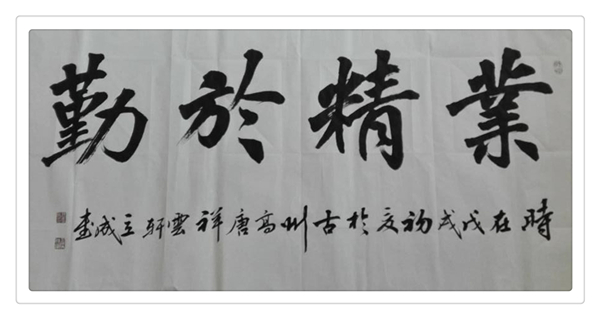 業精於勤
時在戊戌初夏於古州高唐祥雲軒立成書